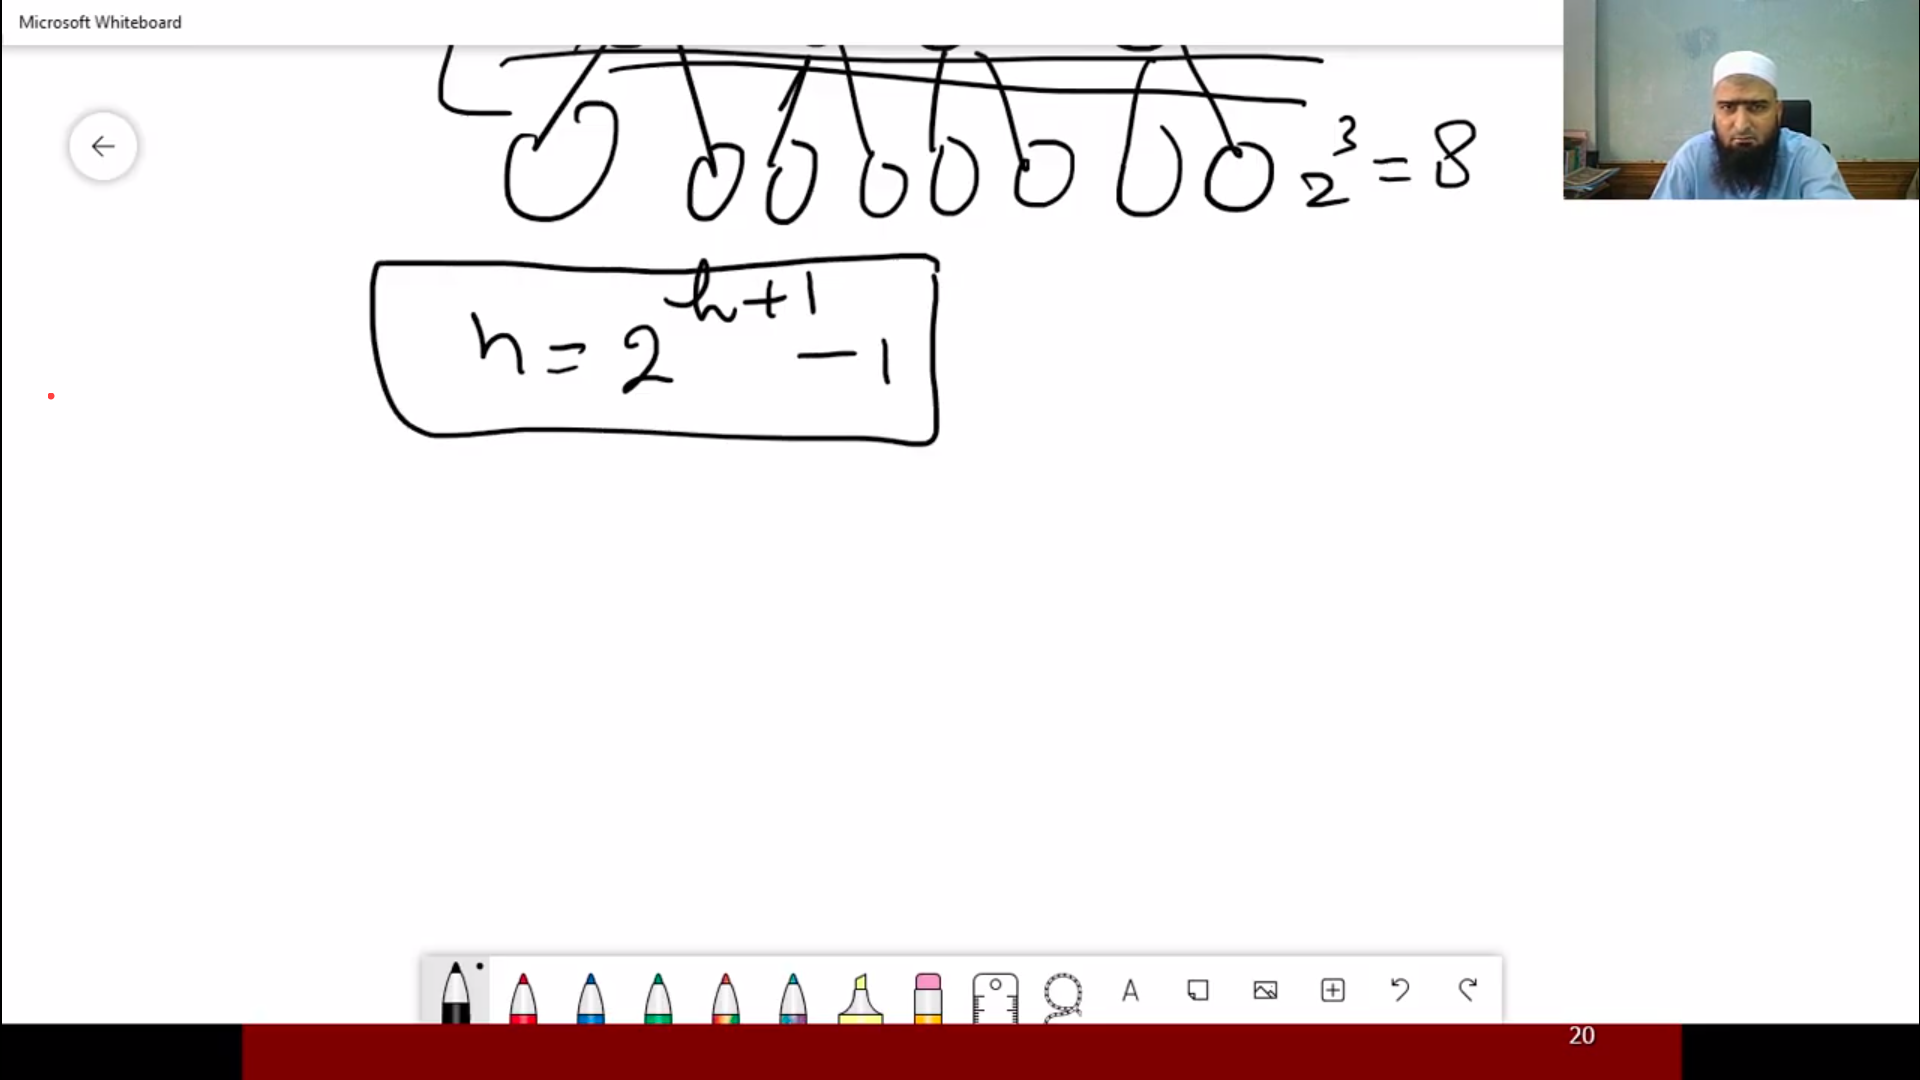 Microsoft Whiteboard
2³ = 8
n = 2^{h+1} - 1
A
20